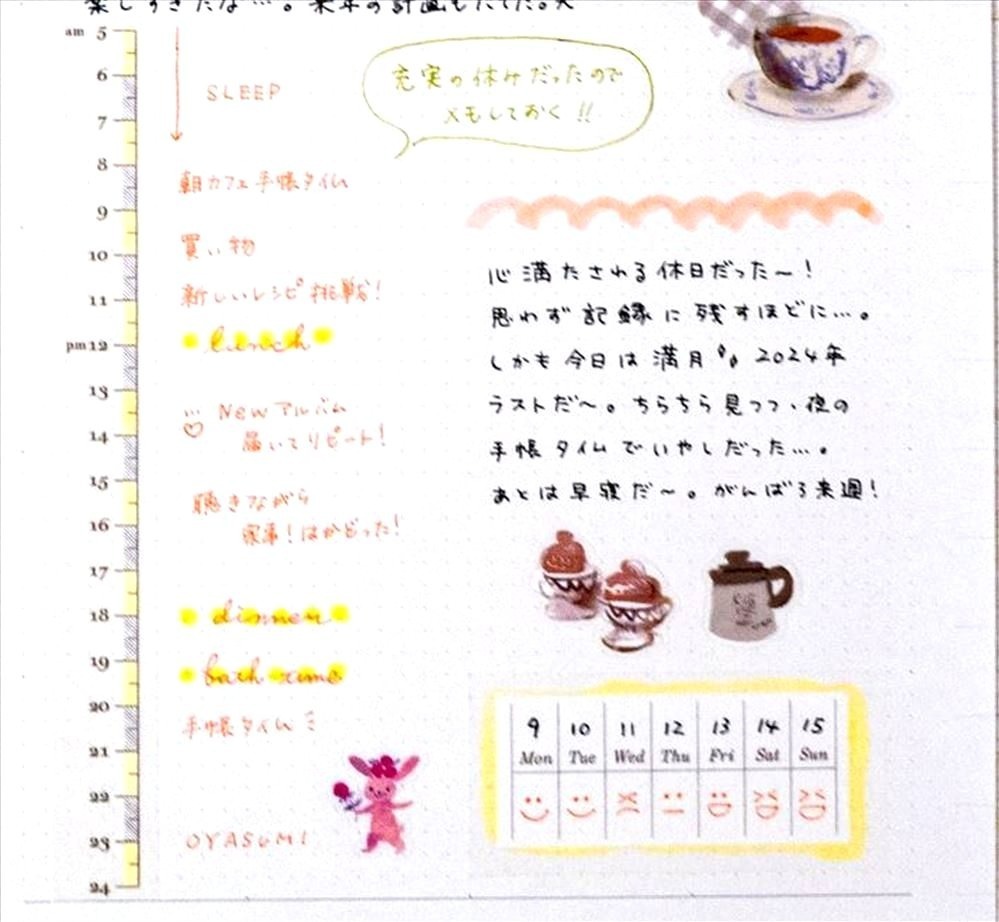 楽しすぎたな…。来年の計画もたてた。
am 5
6
7
8
9
10
11
pm12
13
14
15
16
17
18
19
20
21
22
23
24
SLEEP
朝カフェ手帳タイム
買い物
新しいレシピ挑戦!
lunch
Newアルバム
届いてリピート!
聴きながら
家事!はかどった!
dinner
bath time
手帳タイム
OYASUMI
充実の休みだったので
メモしておく!!
心満たされる休日だった〜!
思わず記録に残すほどに…。
しかも今日は満月 2024年
ラストだ〜。ちらちら見つつ、夜の
手帳タイムでいやしだった…。
あとは早寝だ〜。がんばろ来週!
9 10 11 12 13 14 15
Mon Tue Wed Thu Fri Sat Sun